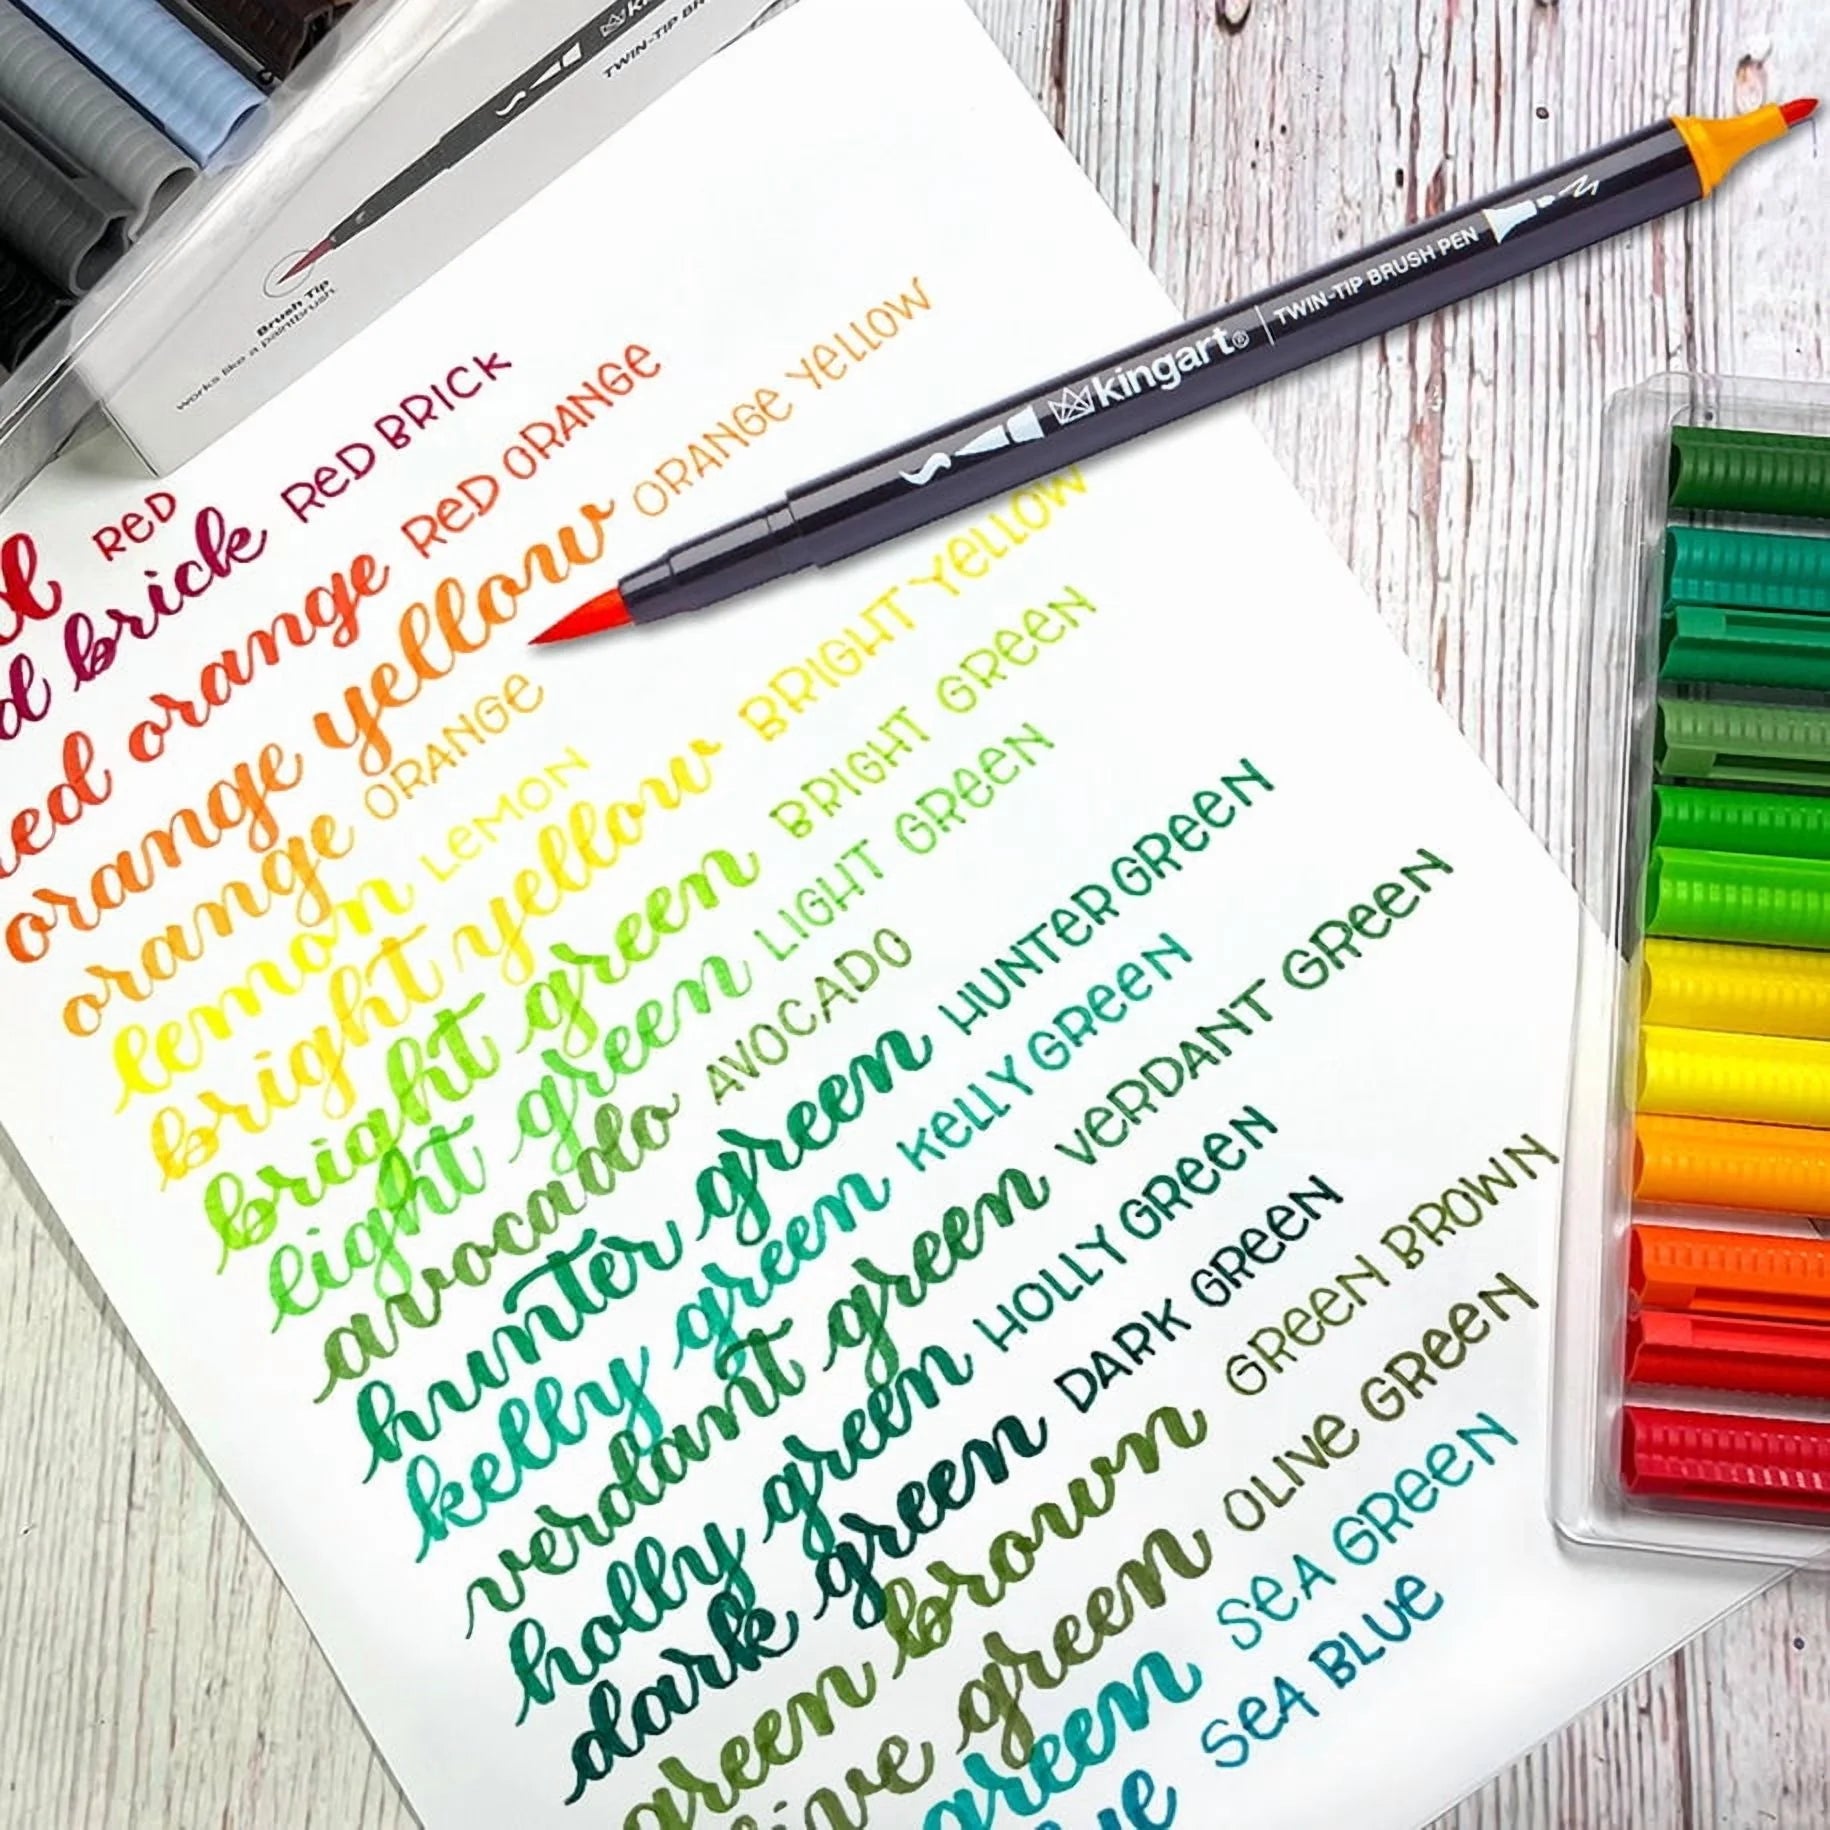 kingart
TWIN-TIP
Brush Tip
Works like a paintbrush
kingart® | TWIN-TIP BRUSH PEN
RED
brick RED BRICK
red orange RED ORANGE
orange yellow ORANGE YELLOW
orange ORANGE
lemon LEMON
bright yellow BRIGHT YELLOW
bright green BRIGHT GREEN
light green LIGHT GREEN
avocado AVOCADO
hunter green HUNTER GREEN
kelly green KELLY GREEN
verdant green VERDANT GREEN
holly green HOLLY GREEN
dark green DARK GREEN
green brown GREEN BROWN
olive green OLIVE GREEN
green SEA GREEN
SEA BLUE